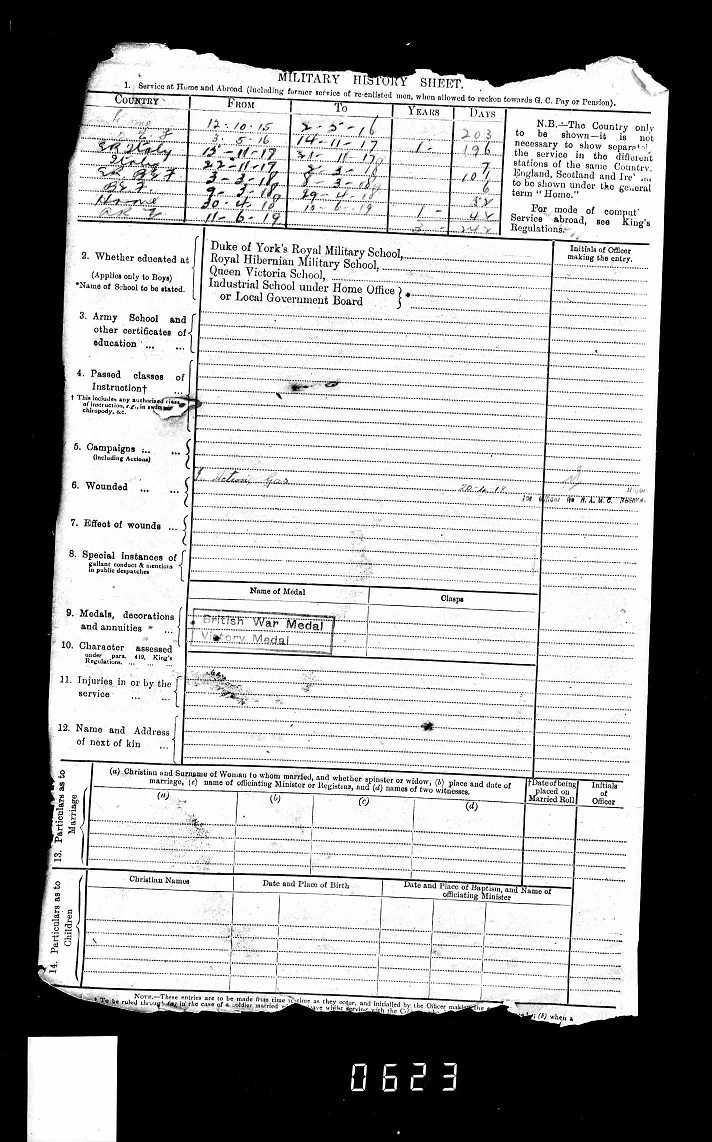 MILITARY HISTORY SHEET.
1. Service at Home and Abroad (including former service of re-enlisted men, when allowed to reckon towards G. C. Pay or Pension).
COUNTRY FROM TO YEARS DAYS
Home 12-10-15 2-5-16 203
B.E.F 3-5-16 14-11-17 1- 196
ER Italy 15-11-17 21-11-17 7
Italy 22-11-17 2-3-18 101
ER BEF 3-3-18 8-3-18 6
B.E.F. 9-3-18 29-4-18 52
Home 30-4-18 10-6-19 1- 42
AR Z 11-6-19
3- 242
N.B.—The Country only
to be shown—it is not
necessary to show separate
the service in the different
stations of the same Country.
England, Scotland and
to be shown under the general
term "Home."
For mode of
Service abroad, see King's
Regulations.
2. Whether educated at
(Applies only to Boys)
*Name of School to be stated.
Duke of York's Royal Military School,
Royal Hibernian Military School,
Queen Victoria School,
Industrial School under Home Office
or Local Government Board } *
Initials of Officer
making the entry.
3. Army School and
other certificates of
education ... ...
4. Passed classes of
Instruction†
† This includes any authorised class
of instruction, e.g., in
chiropody, &c.
5. Campaigns ... ...
(including Actions)
6. Wounded ... ...
In Action, Gas 20-4-18
for Officer R.A.M.C. Records
7. Effect of wounds ...
8. Special instances of
gallant conduct & mentions
in public despatches
Name of Medal Clasps
9. Medals, decorations
and annuities " ...
British War Medal
Victory Medal
10. Character assessed
under para. 419, King's
Regulations. ... ...
11. Injuries in or by the
service ... ...
12. Name and Address
of next of kin ...
13. Particulars as to
Marriage
(a) Christian and Surname of Woman to whom married, and whether spinster or widow, (b) place and date of
marriage, (c) name of officiating Minister or Registrar, and (d) names of two witnesses.
(a) (b) (c) (d)
†Date of being
placed on
Married Roll
Initials
of
Officer
14. Particulars as to
Children
Christian Names Date and Place of Birth Date and Place of Baptism, and Name of
officiating Minister
NOTE.—These entries are to be made from time to time as they occur, and initialled by the Officer making the
* To be ruled through in the case of a soldier married whilst serving with the (b) when a
0623